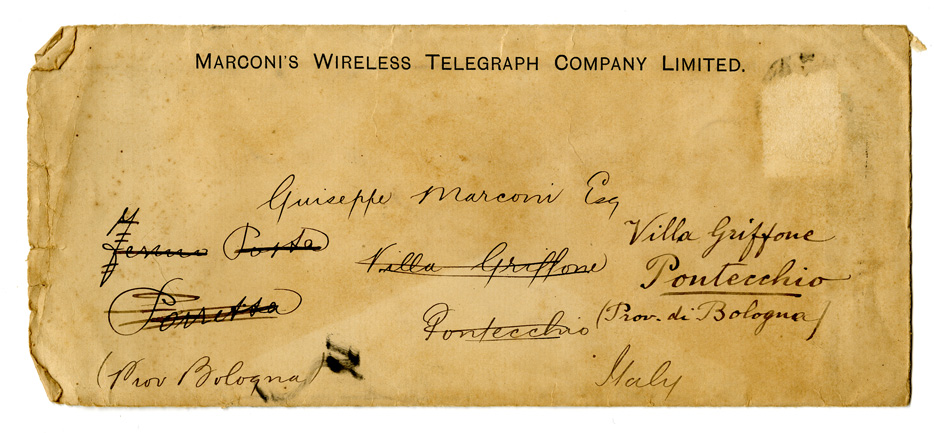 MARCONI'S WIRELESS TELEGRAPH COMPANY LIMITED.
Guiseppe Marconi Esq
Fermo Posta
Porretta
(Prov Bologna)
Villa Griffone
Pontecchio
Villa Griffone
Pontecchio
(Prov. di Bologna)
Italy